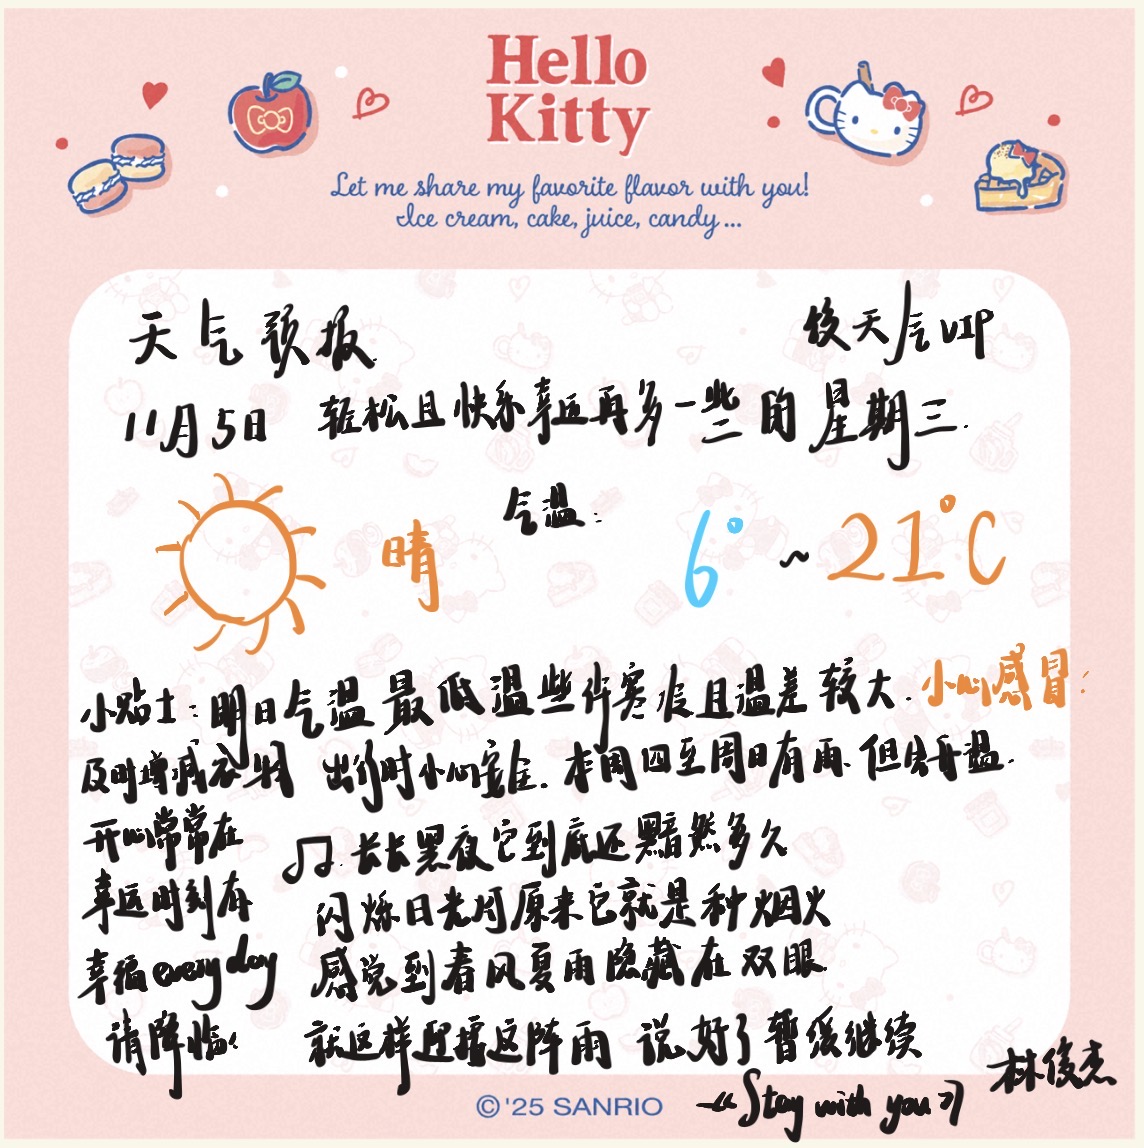 Hello
Kitty
Let me share my favorite flavor with you!
Ice cream, cake, juice, candy...
天气预报 俊天气VIP
11月5日 轻松且快乐幸运再多一些的星期三.
晴 气温: 6°~21°C
小贴士:明日气温最低温些许寒凉且温差较大.小心感冒.
及时增减衣物 出行时小心安全.本周四至周日有雨.但会升温.
开心常常在
幸运时刻有
幸福everyday
请降临!
♫.长长黑夜它到底还黯然多久
闪烁日光灯原来它就是种烟火
感觉到春风夏雨隐藏在双眼
就这样迎接这阵雨 说好了暂缓继续
—《Stay with you》 林俊杰
©'25 SANRIO